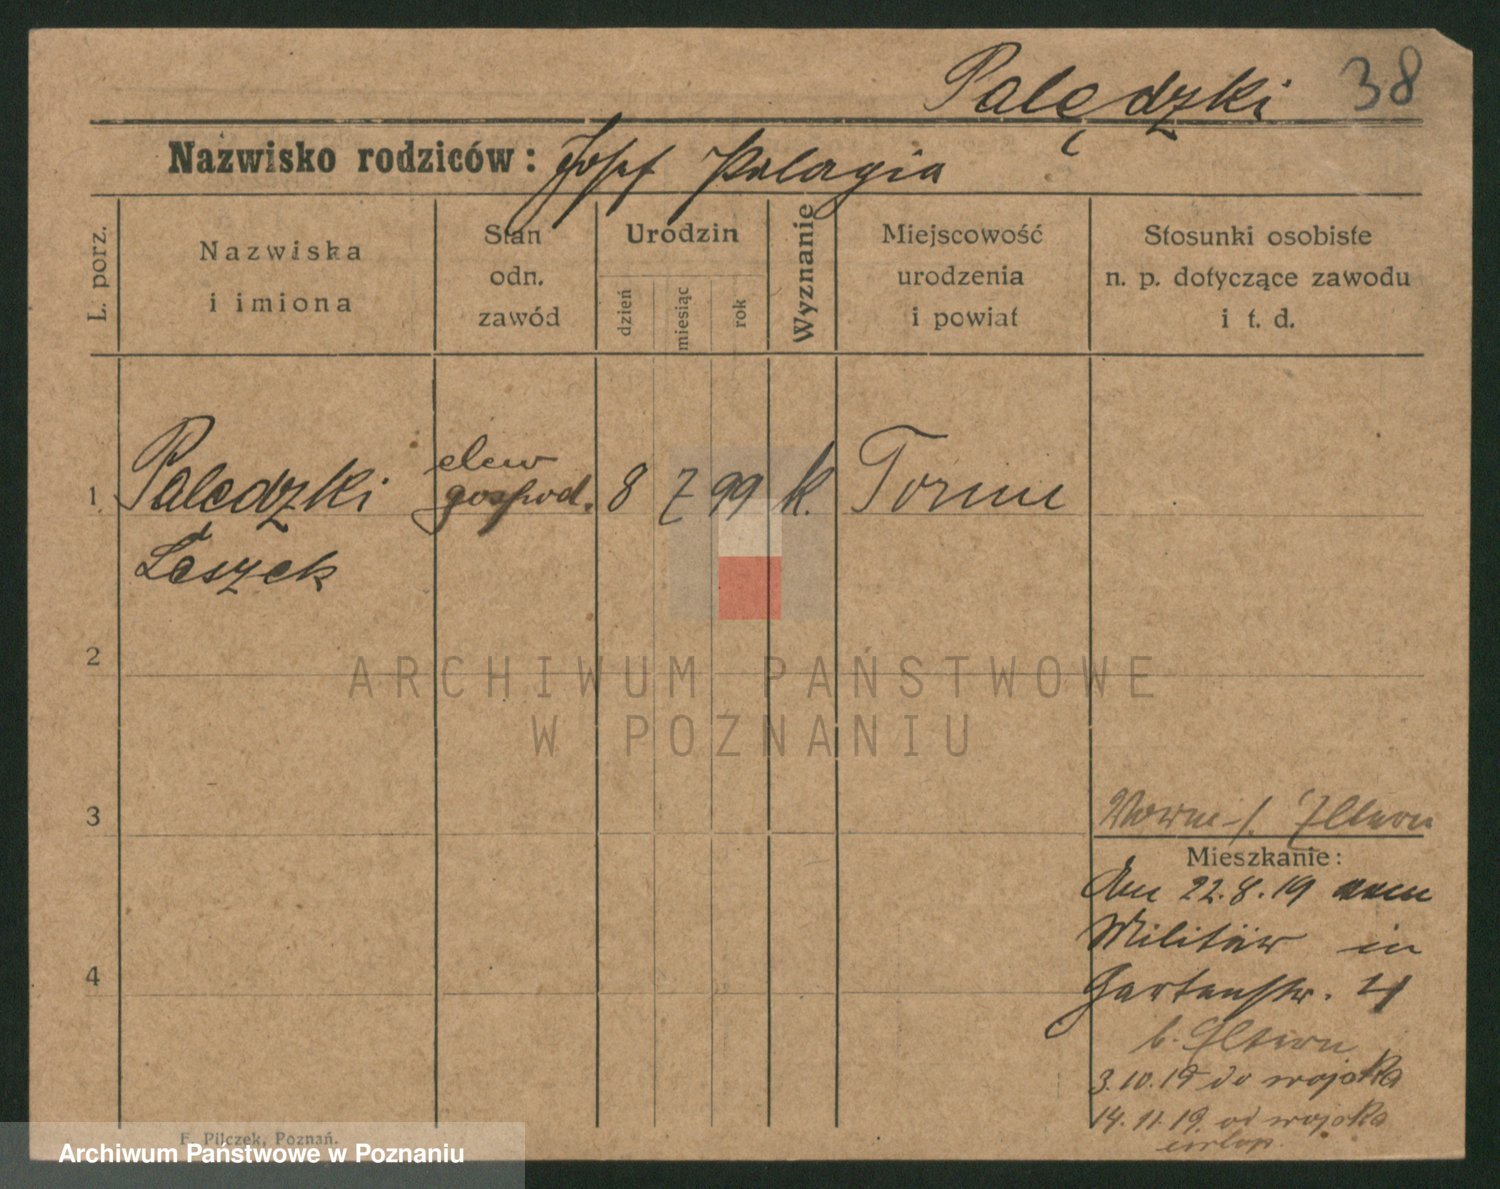 Palędzki 38
Nazwisko rodziców: Josef Pelagia
L. porz.
Nazwiska
i imiona
Stan
odn.
zawód
Urodzin
dzień
miesiąc
rok
Wyznanie
Miejscowość
urodzenia
i powiat
Stosunki osobiste
n. p. dotyczące zawodu
i t. d.
1 Palędzki elew gospod. 8 7 99 k. Torun
Leszek
2
3
4
Mieszkanie:
22.8.19
Militär in
Gartenstr. 4
b. Eltern
3.10.19 do wojska
14.11.19 od wojska
urlop.
F. Pilczek, Poznań.
ARCHIWUM PAŃSTWOWE
W POZNANIU
Archiwum Państwowe w Poznaniu